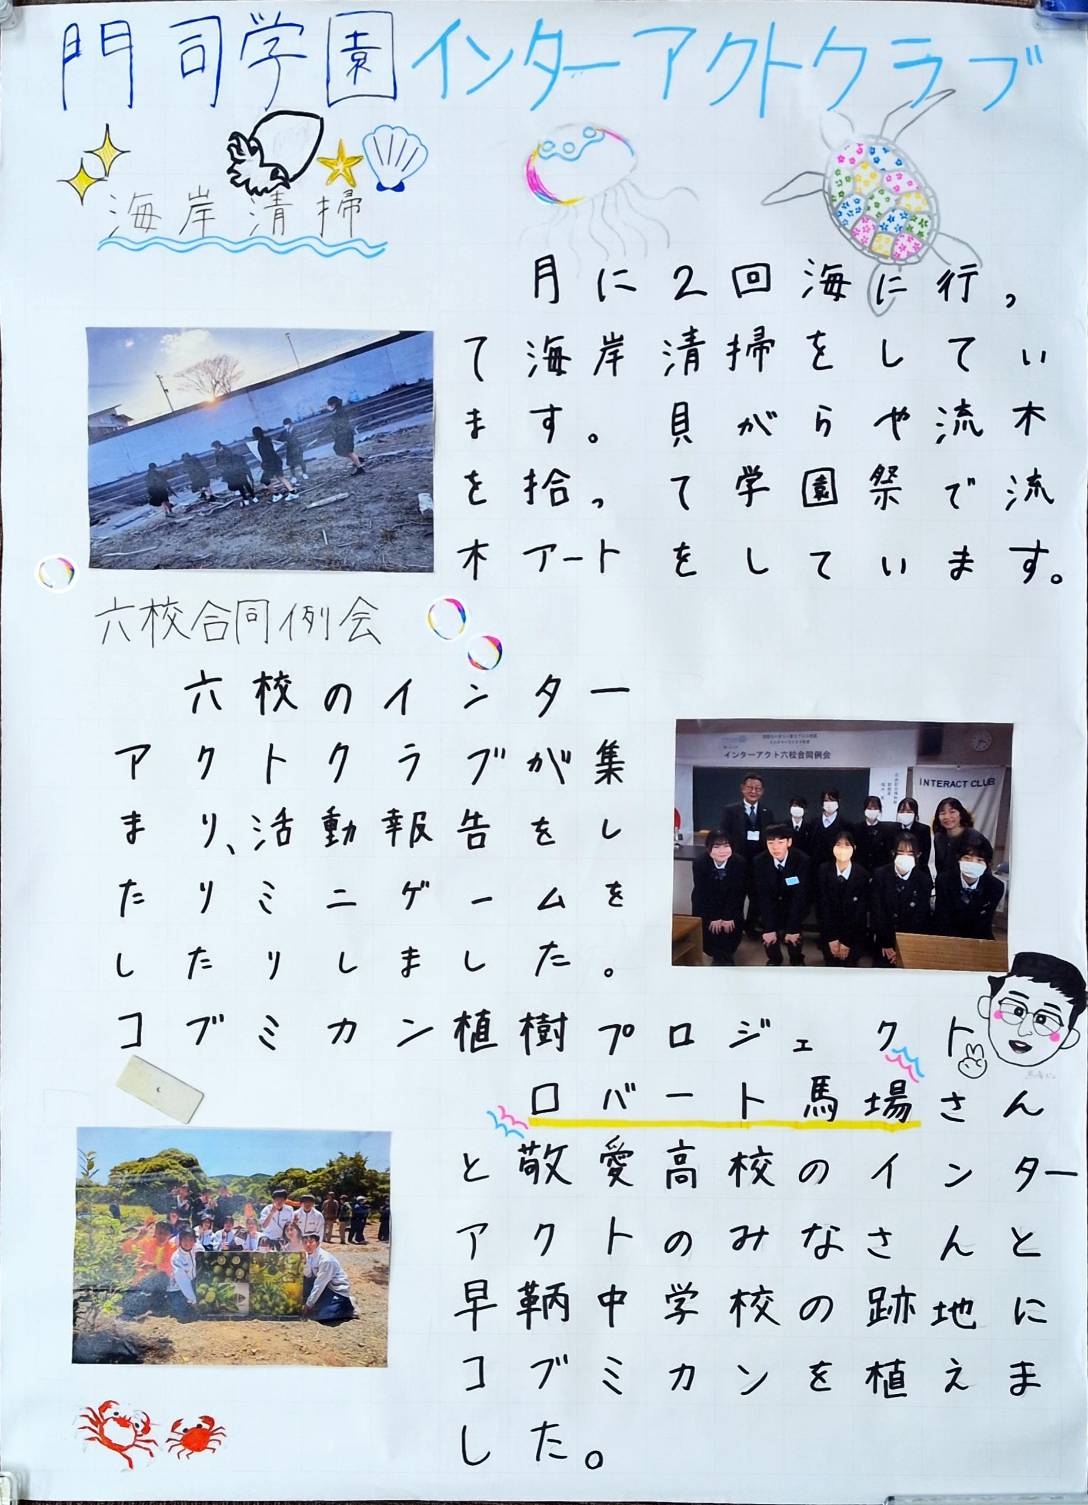 門司学園インターアクトクラブ
海岸清掃
月に2回海に行っ
て海岸清掃をしてい
ます。貝がらや流木
を拾って学園祭で流
木アートをしています。
六校合同例会
六校のインター
アクトクラブが集
まり、活動報告をし
たりミニゲームを
したりしました。
インターアクト六校合同例会
INTERACT CLUB
コブミカン植樹プロジェクト
ロバート馬場さん
と敬愛高校のインター
アクトのみなさんと
早鞆中学校の跡地に
コブミカンを植えま
した。